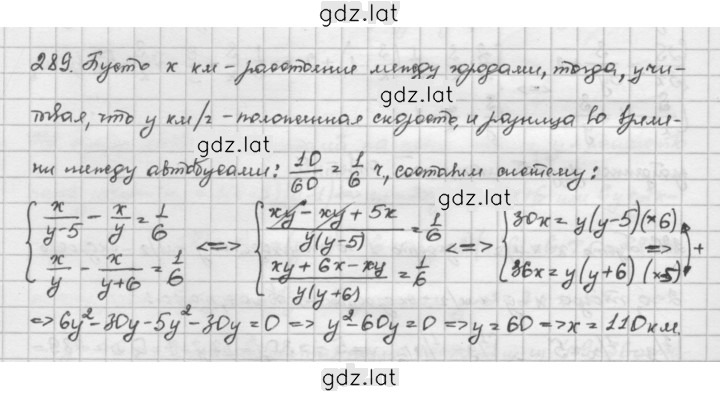 gdz.lat
289. Пусть x км - расстояние между городами, тогда, учи-
gdz.lat
тывая, что y км/ч - положенная скорость, и разница во време-
ни между автобусами: 10/60 = 1/6 ч, составим систему:
gdz.lat
{ x/(y-5) - x/y = 1/6 <=> { (xy - xy + 5x)/(y(y-5)) = 1/6 <=> { 30x = y(y-5) (×6)
{ x/y - x/(y+6) = 1/6 { (xy + 6x - xy)/(y(y+6)) = 1/6 { 36x = y(y+6) (×5) + =>
=> 6y² - 30y - 5y² - 30y = 0 => y² - 60y = 0 => y = 60 => x = 110 км.
gdz.lat